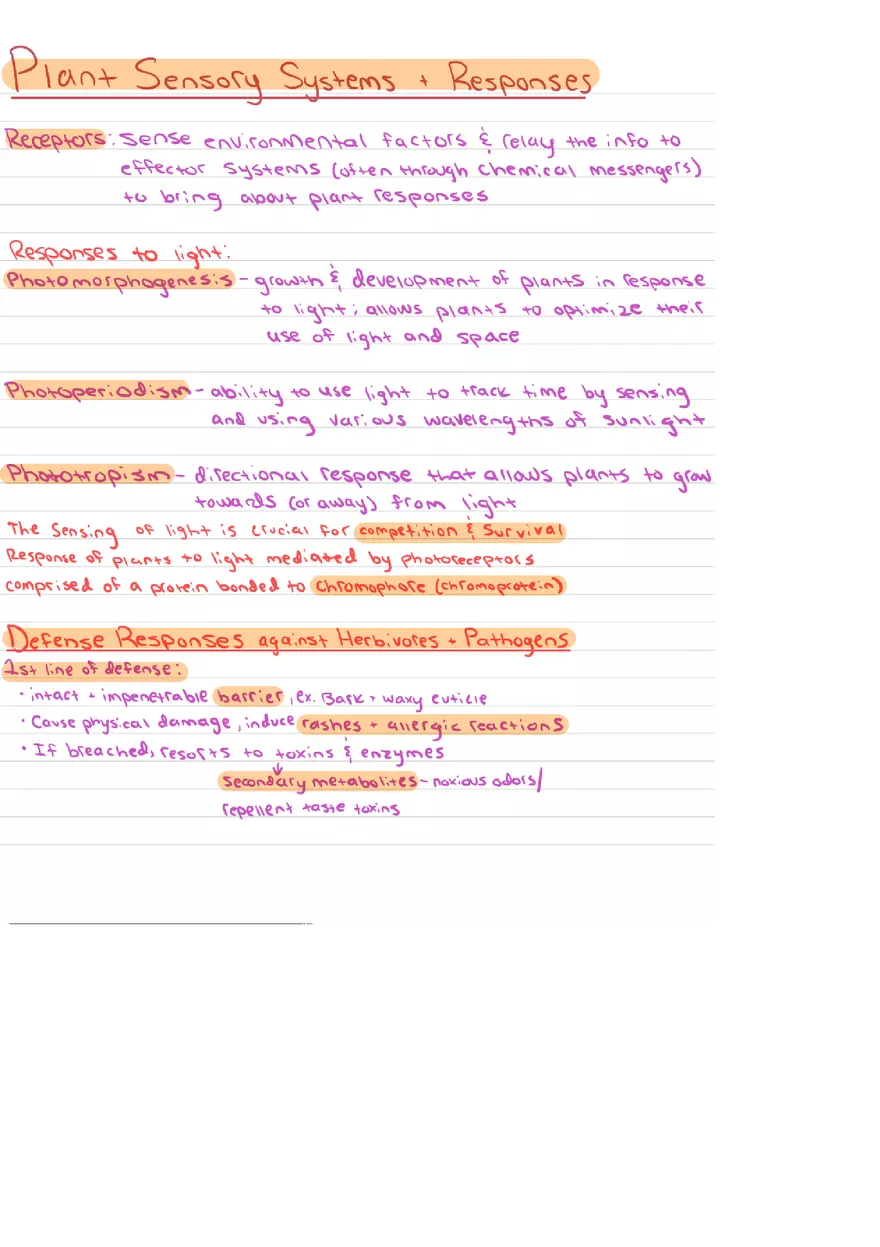 Plant Sensory Systems + Responses
Receptors: Sense environmental factors & relay the info to
effector systems (often through chemical messengers)
to bring about plant responses
Responses to light:
Photomorphogenesis - growth & development of plants in response
to light; allows plants to optimize their
use of light and space
Photoperiodism - ability to use light to track time by sensing
and using various wavelengths of sunlight
Phototropism - directional response that allows plants to grow
towards (or away) from light
The Sensing of light is crucial for competition & Survival
Response of plants to light mediated by photoreceptors
comprised of a protein bonded to Chromophore (chromoprotein)
Defense Responses against Herbivores + Pathogens
1st line of defense:
• intact + impenetrable barrier, ex. Bark + waxy cuticle
• Cause physical damage, induce rashes + allergic reactions
• If breached, resorts to toxins & enzymes
Secondary metabolites - noxious odors/
repellent taste toxins